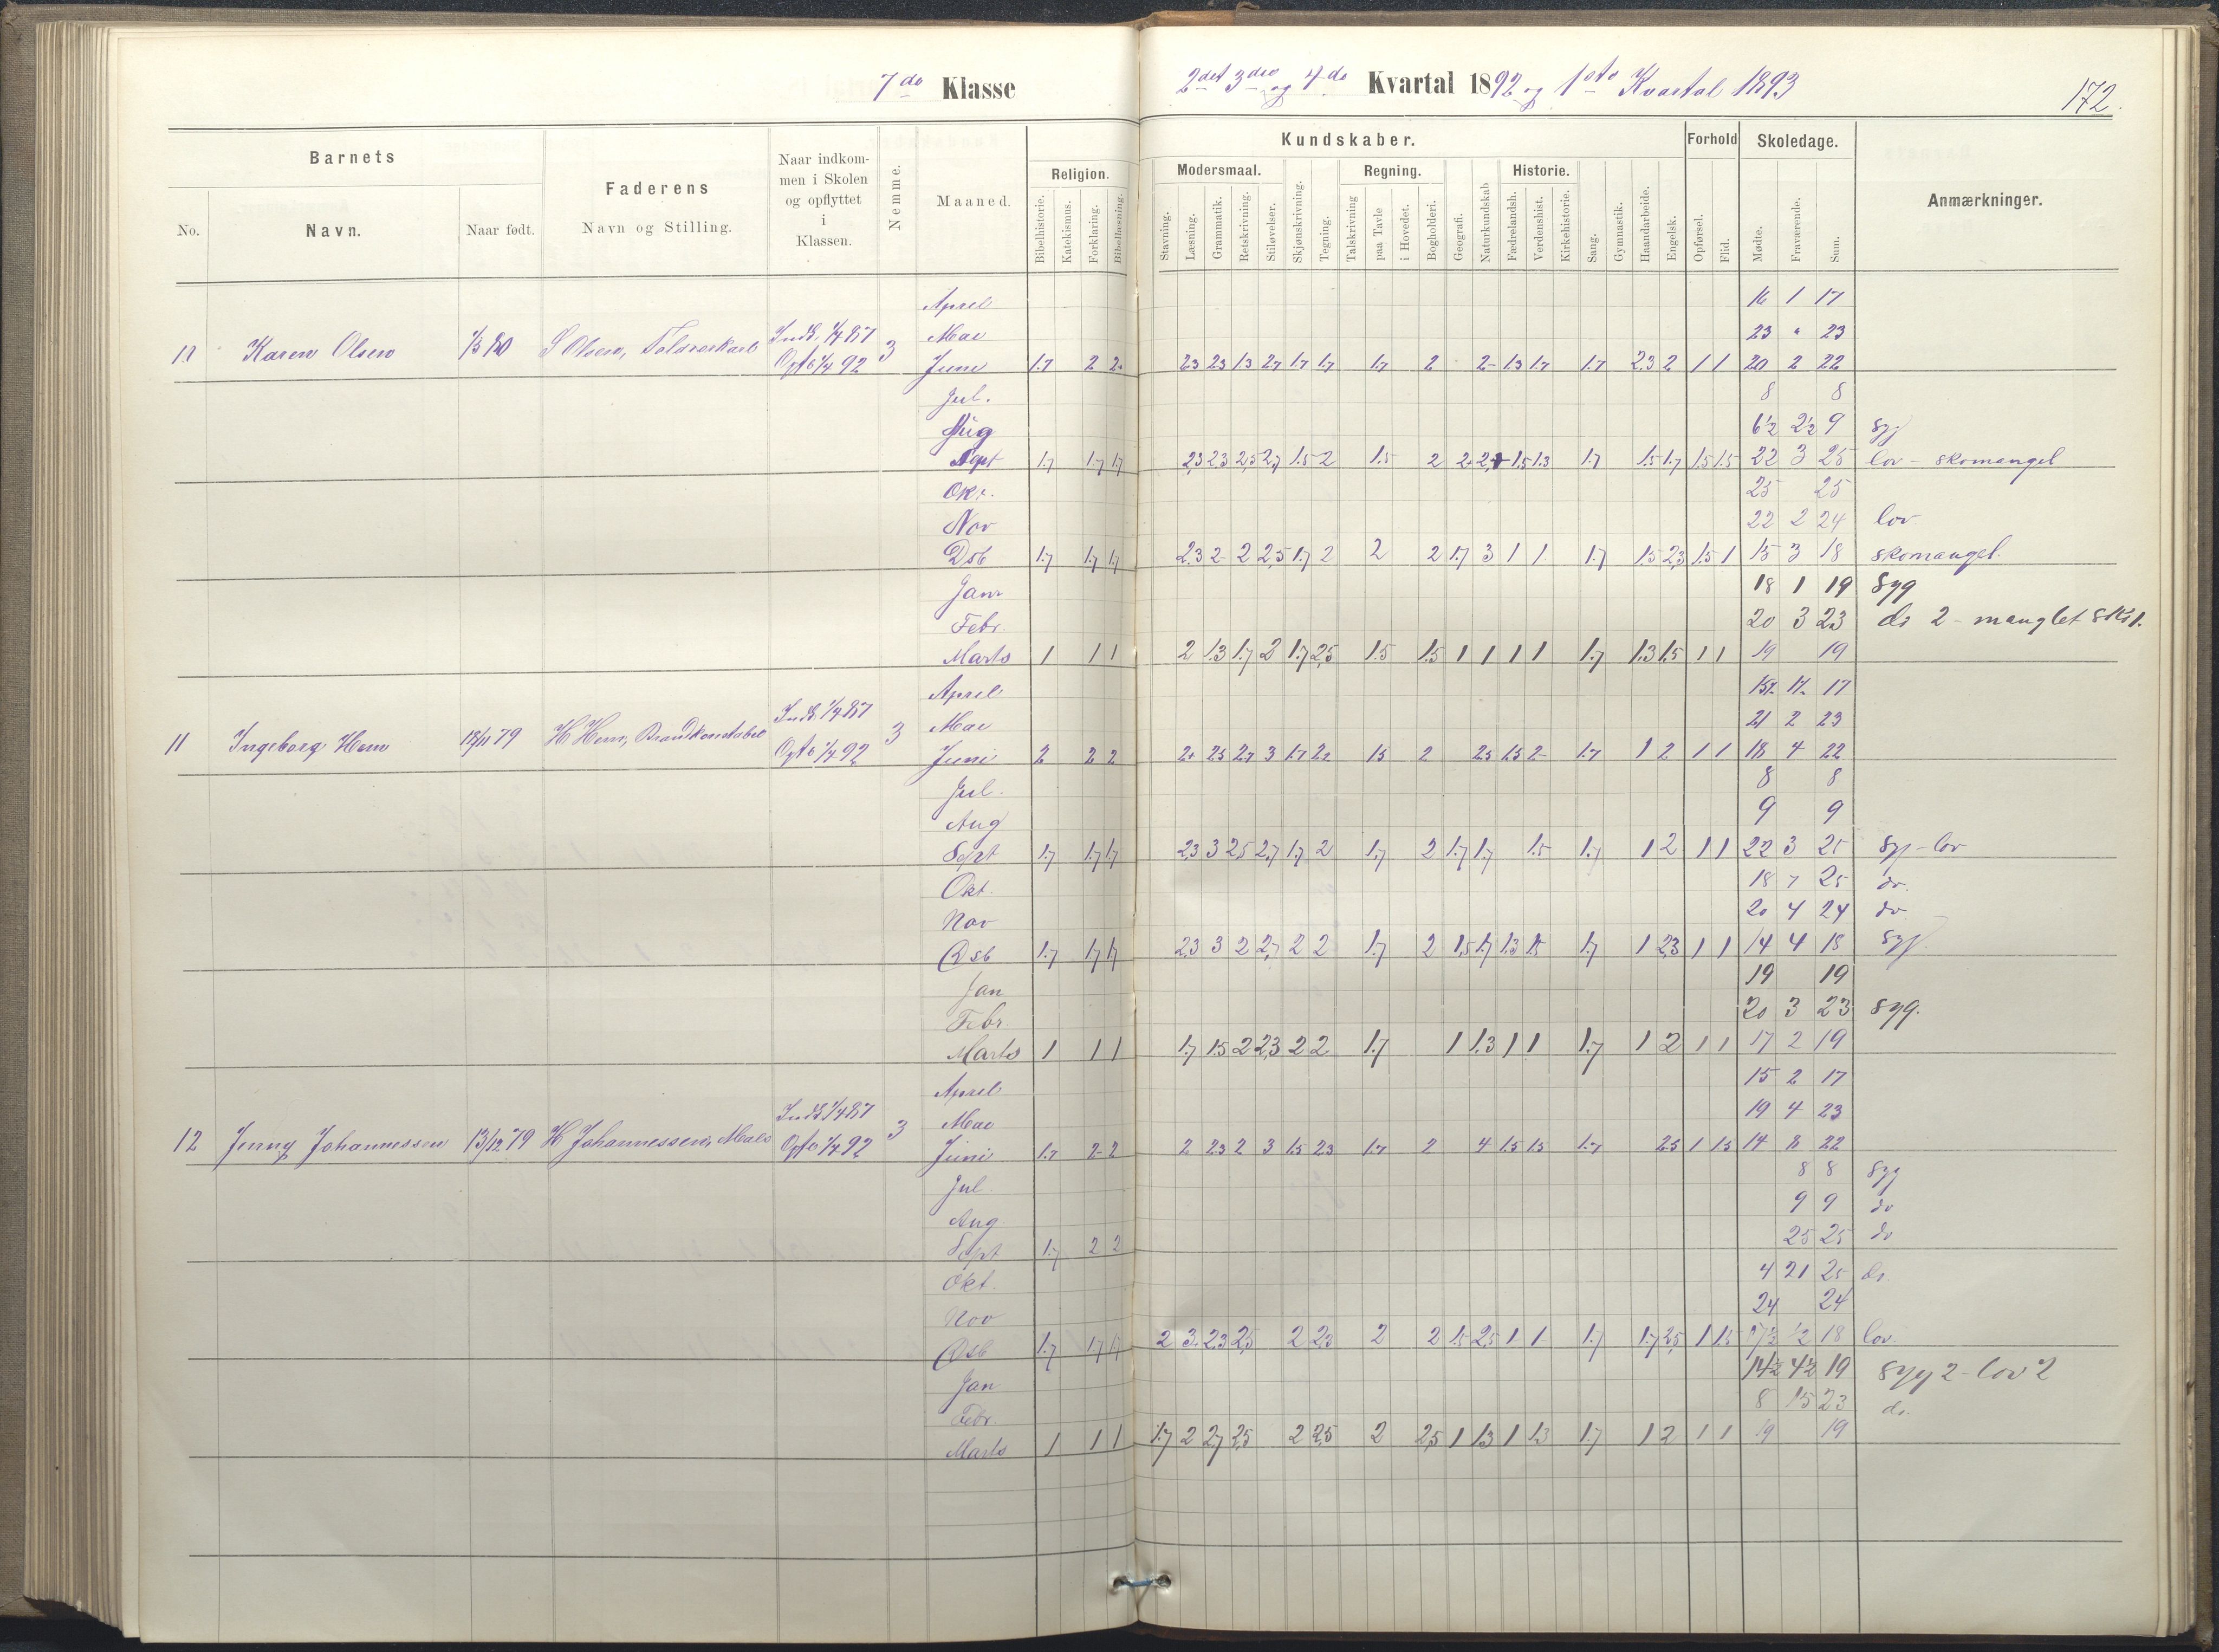 7de Klasse
2det 3die og 4de Kvartal 1892 og 1ste Kvartal 1893
172.
Barnets
Faderens
Navn og Stilling.
Naar indkommen i Skolen og opflyttet i Klassen.
Nemme.
Maaned.
Religion.
Kundskaber.
Forhold
Skoledage.
Anmærkninger.
Modersmaal.
Regning.
Historie.
No.
Navn.
Naar født.
Bibelhistorie.
Katekismus.
Forklaring.
Bibellæsning.
Stavning.
Læsning.
Grammatik.
Retskrivning.
Stiløvelser.
Skjønskrivning.
Tegning.
Talskrivning
paa Tavle
i Hovedet.
Bogholderi.
Geografi.
Naturkundskab
Fædrelandsh.
Verdenshist.
Kirkehistorie.
Sang.
Gymnastik.
Haandarbeide.
Engelsk.
Opførsel.
Flid.
Mødte.
Fraværende.
Sum.
April 16 1 17
Karen Olsen Inds. 1/4 87 3 Mai 23 " 23
Opfl 1/4 92 Juni 1.7 2 2 1.7 1.7 2 1.7 1 1 20 2 22
Jul. 8 8
Aug 6½ 2½ 9 Syg
Sept 1.7 1.7 1.7 2,3 2,3 2,5 2,7 1.5 2 1.5 2 1.5 1.3 1.7 1.5 1.7 1.5 1.5 22 3 25 lov - skomangel
Okt. 25 25
Nov 22 2 24 lov
Dsb 1.7 1.7 1.7 2.3 2 2 2,5 1.7 2 2 2 1.7 3 1 1 1.7 1.5 2,3 1.5 1 15 3 18 skomangel.
Janr 18 1 19 Syg
Febr. 20 3 23 do 2 - manglet sko 1.
Marts 1 1 1 2 1.3 1.7 2 1.7 2,5 1.5 1.5 1 1 1 1 1.7 1.3 1.5 1 1 19 19
April 17
11 Ingeborg Hem 79 H Hem, Brandkonstabel Inds 1/4 87 3 Mai 21 2 23
Opfl 1/4 92 Juni 2 2 2 3 1.7 15 2 1.7 1 2 1 1 18 4 22
Jul. 8 8
Aug 9 9
Sept 1.7 1.7 1.7 2,3 3 2,5 2,7 1.7 2 1.7 2 1.7 1.7 1.5 1.7 1 2 1 1 22 3 25 Syg - lov
Okt. 18 7 25 do.
Nov 20 4 24 do
Dsb 1.7 1.7 1.7 2,3 3 2 2,7 2 2 1.7 2 1,5 1.7 1.3 1.5 1.7 1 2,3 1 1 14 4 18 Syg.
Jan 19 19
Febr. 20 3 23 syg.
Marts 1 1 1 1.7 1.5 2 2,3 2 2 1.7 1 1.3 1 1 1.7 1 2 1 1 17 2 19
April 15 2 17
Inds 1/4 87 3 Mai 19 4 23
12 Jenny Johannessen 13/12 79 H Johannessen, Opfl 1/4 92 Juni 1.7 2 2 2 23 2 3 1.5 23 1.7 2 4 1.5 1.5 1.7 2.5 1 1.5 14 8 22
Jul. 8 8 Syg
Aug 9 9 do
Sept 1.7 2 2 25 25 do
Okt. 4 21 25 do.
Nov 24 24
Dsb 1.7 1.7 1.7 2 3 2,3 2,5 2 2,3 2 2 1.5 2,5 1 1 1.7 1.7 2,5 1 1.5 17½ ½ 18 lov.
Jan 14½ 4½ 19 Syg 2 - lov 2
Febr. 8 15 23 do.
Marts 1 1 1 1.7 2 2,7 2,5 2 2,5 2 2,5 1 1.3 1 1.3 1.7 1 2 1 1 19 19